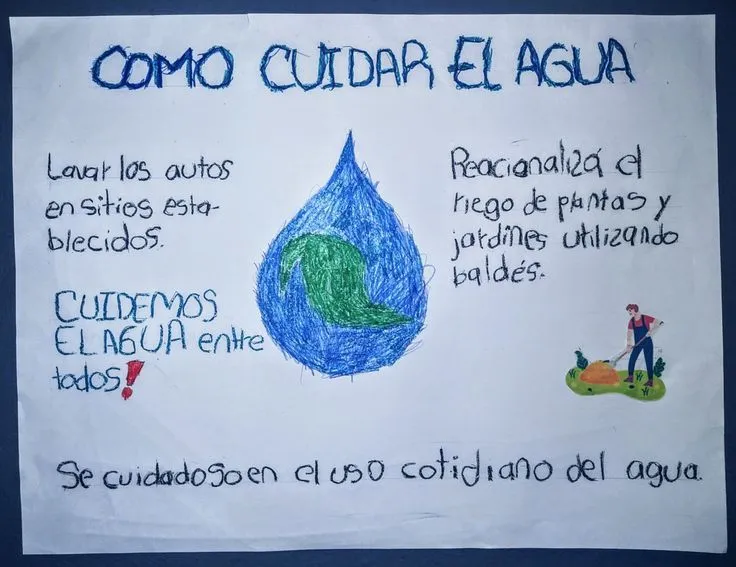 COMO CUIDAR EL AGUA
Lavar los autos
en sitios esta-
blecidos.
CUIDEMOS
EL AGUA entre
todos!
Reacionalizá el
riego de plantas y
jardines utilizando
baldés.
Se cuidadoso en el uso cotidiano del agua.